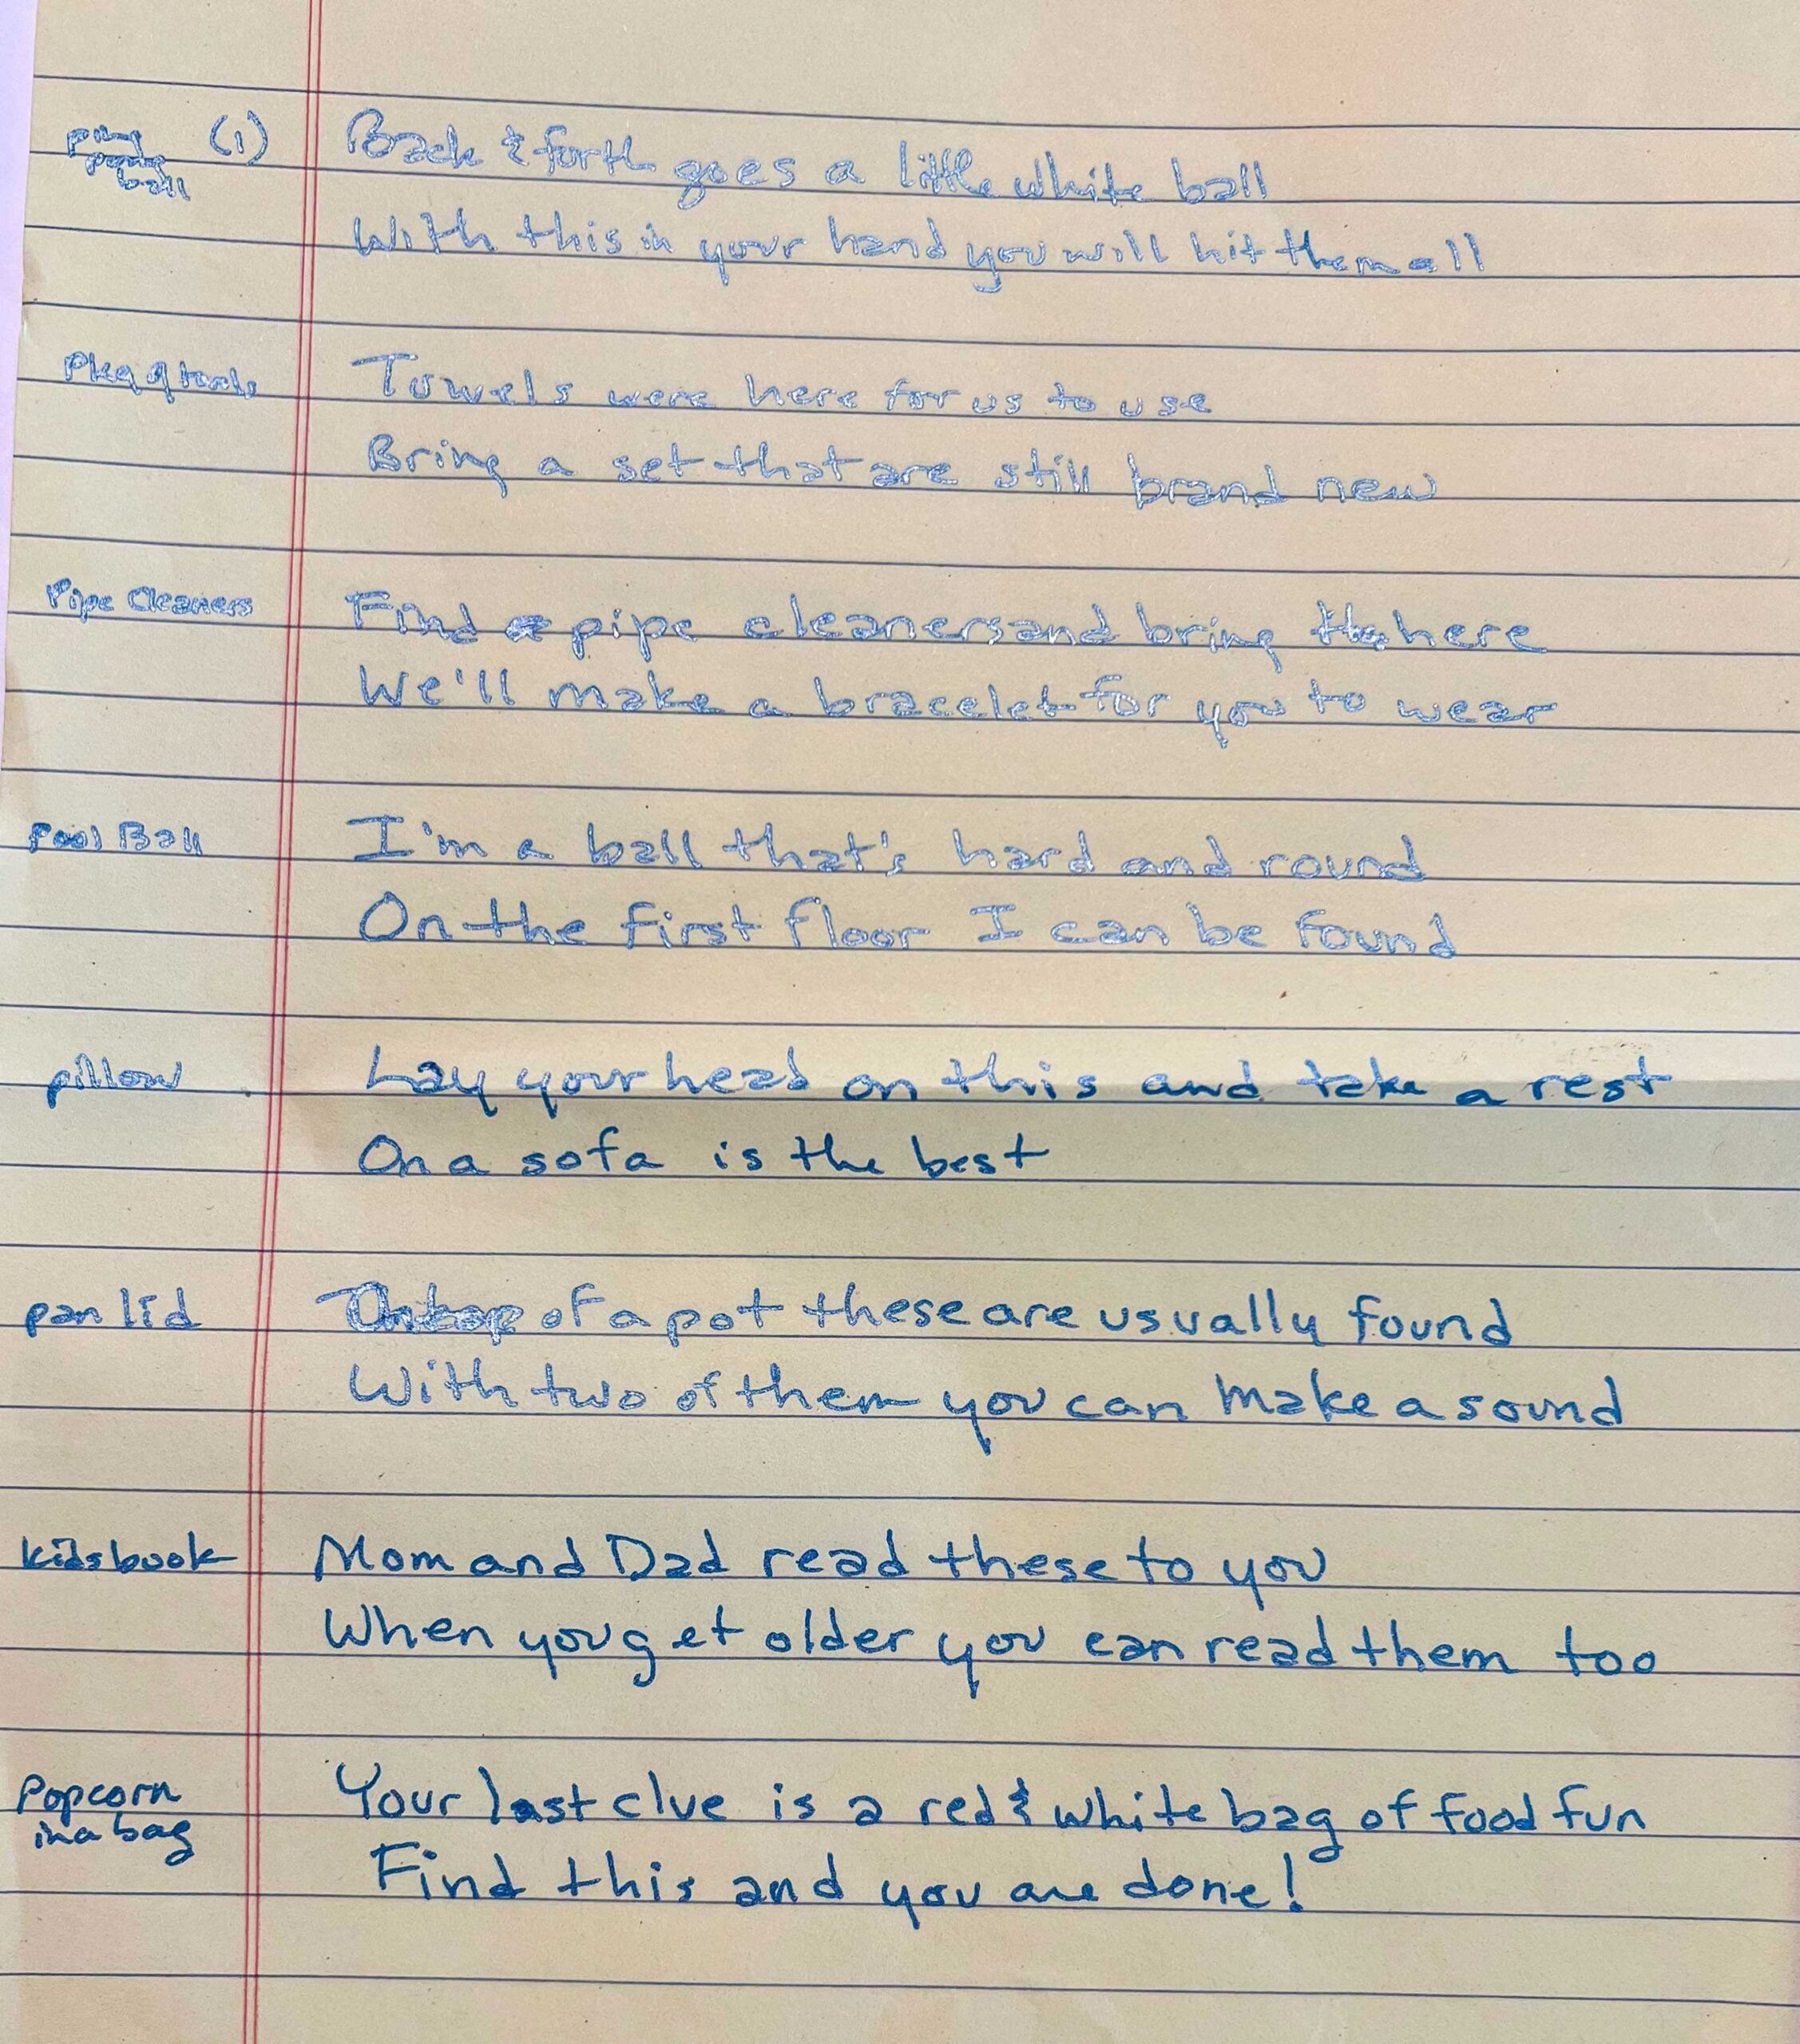 ping (1) Back & forth goes a little white ball
pong
ball
With this in your hand you will hit them all
Pkg of towels Towels were here for us to use
Bring a set that are still brand new
Pipe Cleaners Find pipe cleaners and bring here
We'll make a bracelet for you to wear
Pool Ball I'm a ball that's hard and round
On the first floor I can be found
pillow Lay your head on this and take a rest
On a sofa is the best
pan lid On top of a pot these are usually found
With two of them you can make a sound
kids book Mom and Dad read these to you
When you get older you can read them too
Popcorn Your last clue is a red & white bag of food fun
in a bag
Find this and you are done!